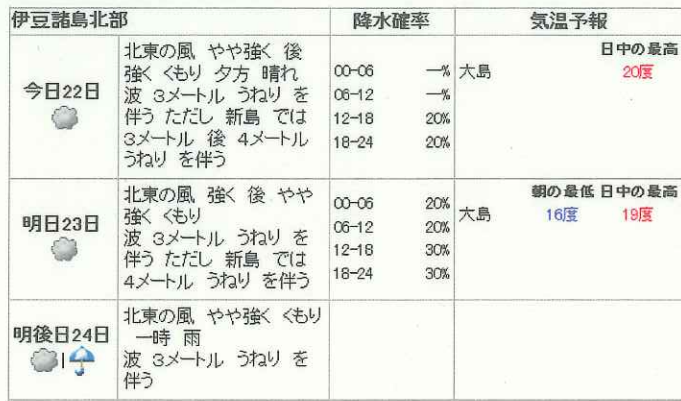 伊豆諸島北部 降水確率 気温予報
今日22日
北東の風 やや強く 後
強く くもり 夕方 晴れ
波 3メートル うねり を
伴う ただし 新島 では
3メートル 後 4メートル
うねり を伴う
00-06 --%
06-12 --%
12-18 20%
18-24 20%
日中の最高
大島 20度
明日23日
北東の風 強く 後 やや
強く くもり
波 3メートル うねり を
伴う ただし 新島 では
4メートル うねり を伴う
00-06 20%
06-12 20%
12-18 30%
18-24 30%
朝の最低 日中の最高
大島 16度 19度
明後日24日
北東の風 やや強く くもり
一時 雨
波 3メートル うねり を
伴う